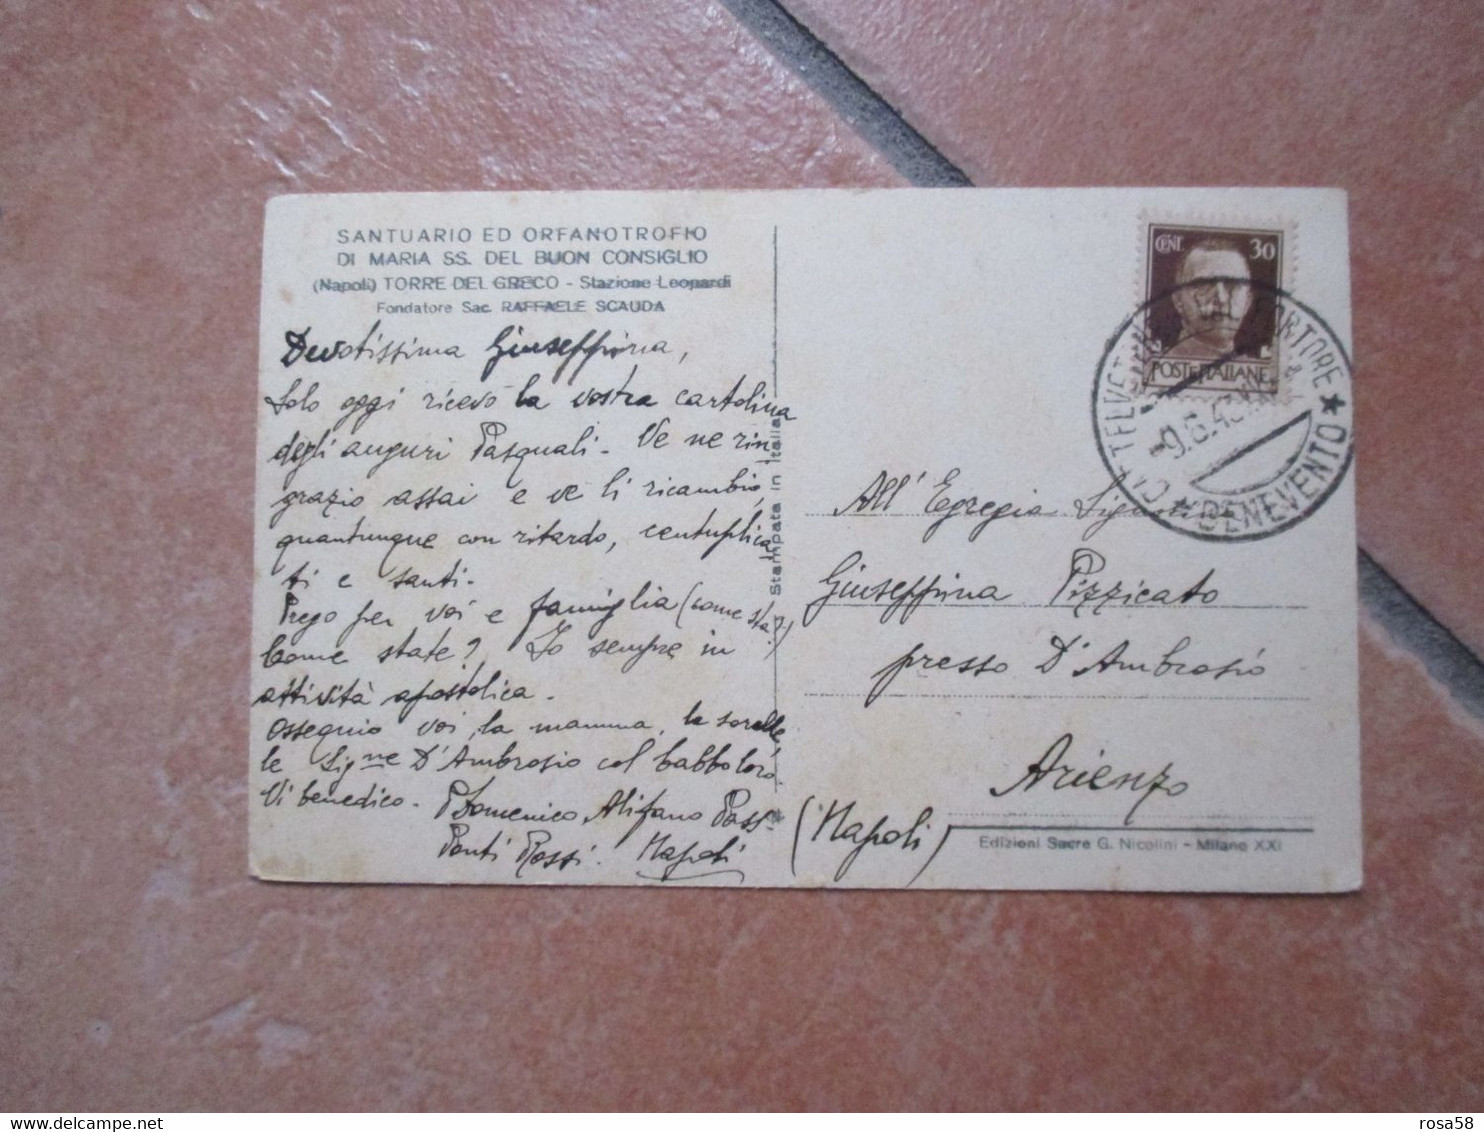 SANTUARIO ED ORFANOTROFIO
DI MARIA SS. DEL BUON CONSIGLIO
(Napoli) TORRE DEL GRECO - Stazione Leopardi
Fondatore Sac. RAFFAELE SCAUDA
Devotissima Giuseppina,
Solo oggi ricevo la vostra cartolina
degli auguri Pasquali. Ve ne rin
grazio assai e ve li ricambio,
quantunque con ritardo, centuplica
ti e santi.
Prego per voi e famiglia (come sta?)
Come state? Io sempre in
attività apostolica.
Ossequio voi, la mamma, le sorelle,
le Signe D'Ambrosio col babbo loro.
Vi benedico. P Domenico Alifano Pass
Ponti Rossi. Napoli
Stampata in Italia
CENT. 30
POSTE ITALIANE
FORTORE
9.6.43
BENEVENTO
All' Egregia
Giuseppina Pizzicato
presso D'Ambrosio
Arienzo
(Napoli)
Edizioni Sacre G. Nicolini - Milano XXI
rosa58